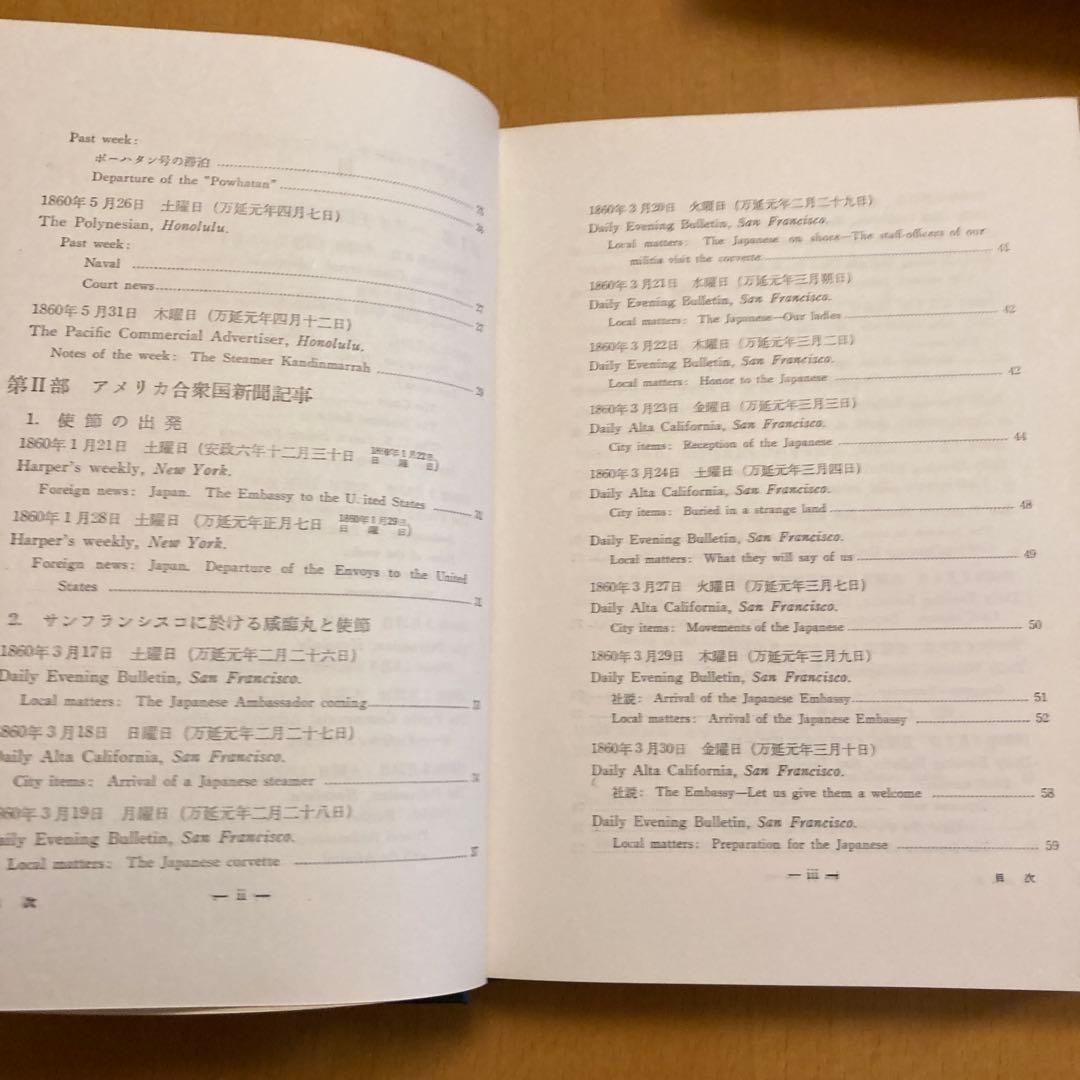 Past week:
ポーハタン号の碇泊
Departure of the "Powhatan"
1860年5月26日 土曜日 (万延元年四月七日)
The Polynesian, Honolulu.
Past week:
Naval
Court news 27
1860年5月31日 木曜日 (万延元年四月十二日) 27
The Pacific Commercial Advertiser, Honolulu.
Notes of the week: The Steamer Kandinmarrah
第II部 アメリカ合衆国新聞記事
1. 使節の出発
1860年1月21日 土曜日 (安政六年十二月三十日 1860年1月22日 日曜日)
Harper's weekly, New York.
Foreign news: Japan. The Embassy to the U.ited States
1860年1月28日 土曜日 (万延元年正月七日 1860年1月29日 日曜日)
Harper's weekly, New York.
Foreign news: Japan. Departure of the Envoys to the United
States
2. サンフランシスコに於ける咸臨丸と使節
1860年3月17日 土曜日 (万延元年二月二十六日)
Daily Evening Bulletin, San Francisco.
Local matters: The Japanese Ambassador coming
860年3月18日 日曜日 (万延元年二月二十七日)
Daily Alta California, San Francisco.
City items: Arrival of a Japanese steamer
860年3月19日 月曜日 (万延元年二月二十八日)
aily Evening Bulletin, San Francisco.
Local matters: The Japanese corvette 37
次
— ii —
1860年3月20日 火曜日 (万延元年二月二十九日)
Daily Evening Bulletin, San Francisco.
Local matters: The Japanese on shore—The staff-officers of our
militia visit the corvette 41
1860年3月21日 水曜日 (万延元年三月朔日)
Daily Evening Bulletin, San Francisco.
Local matters: The Japanese—Our ladies 42
1860年3月22日 木曜日 (万延元年三月二日)
Daily Evening Bulletin, San Francisco.
Local matters: Honor to the Japanese 42
1860年3月23日 金曜日 (万延元年三月三日)
Daily Alta California, San Francisco.
City items: Reception of the Japanese 44
1860年3月24日 土曜日 (万延元年三月四日)
Daily Alta California, San Francisco.
City items: Buried in a strange land 48
Daily Evening Bulletin, San Francisco.
Local matters: What they will say of us 49
1860年3月27日 火曜日 (万延元年三月七日)
Daily Alta California, San Francisco.
City items: Movements of the Japanese 50
1860年3月29日 木曜日 (万延元年三月九日)
Daily Evening Bulletin, San Francisco.
社説: Arrival of the Japanese Embassy 51
Local matters: Arrival of the Japanese Embassy 52
1860年3月30日 金曜日 (万延元年三月十日)
Daily Alta California, San Francisco.
社説: The Embassy—Let us give them a welcome 58
Daily Evening Bulletin, San Francisco.
Local matters: Preparation for the Japanese 59
— iii —
目次